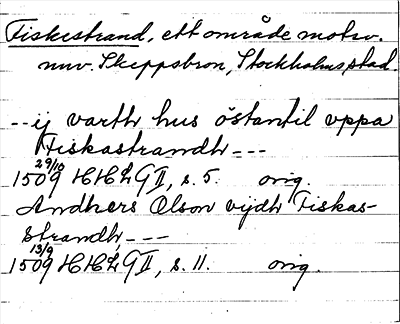 Fiskestrand, ett område motsv.
nuv. Skeppsbron, Stockholms stad.
-- ij varth hus östantil vppa
Fiskastrandh ---
29/10
1509 HHLG II, s. 5. orig.
Andhers Olson vijdh Fiskas-
strandh ---
13/9
1509 HHLG II, s. 11. orig.